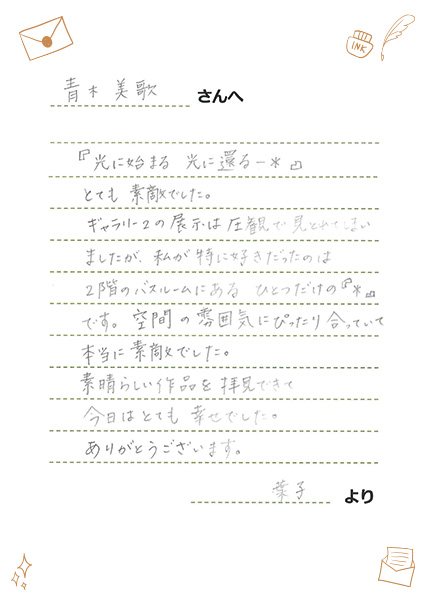 INK
青木 美歌 さんへ
『光に始まる 光に還る－＊』
とても 素敵でした。
ギャラリー2の展示は圧観で見とれてしまい
ましたが、私が特に好きだったのは
2階のバスルームにある ひとつだけの『＊』
です。空間の雰囲気にぴったり合っていて
本当に素敵でした。
素晴らしい作品を拝見できて
今日はとても 幸せでした。
ありがとうございます。
葉子 より